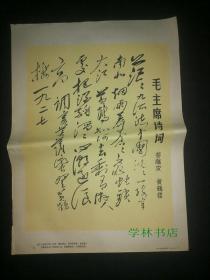 毛主席诗词
菩萨蛮 黄鹤楼
茫茫九派流中国沉沉一线穿
南北烟雨莽苍苍龟蛇锁
大江黄鹤知何去剩有游
人处把酒酹滔滔心潮逐浪
高 调寄菩萨蛮登黄鹤
楼 一九二七
学林书店